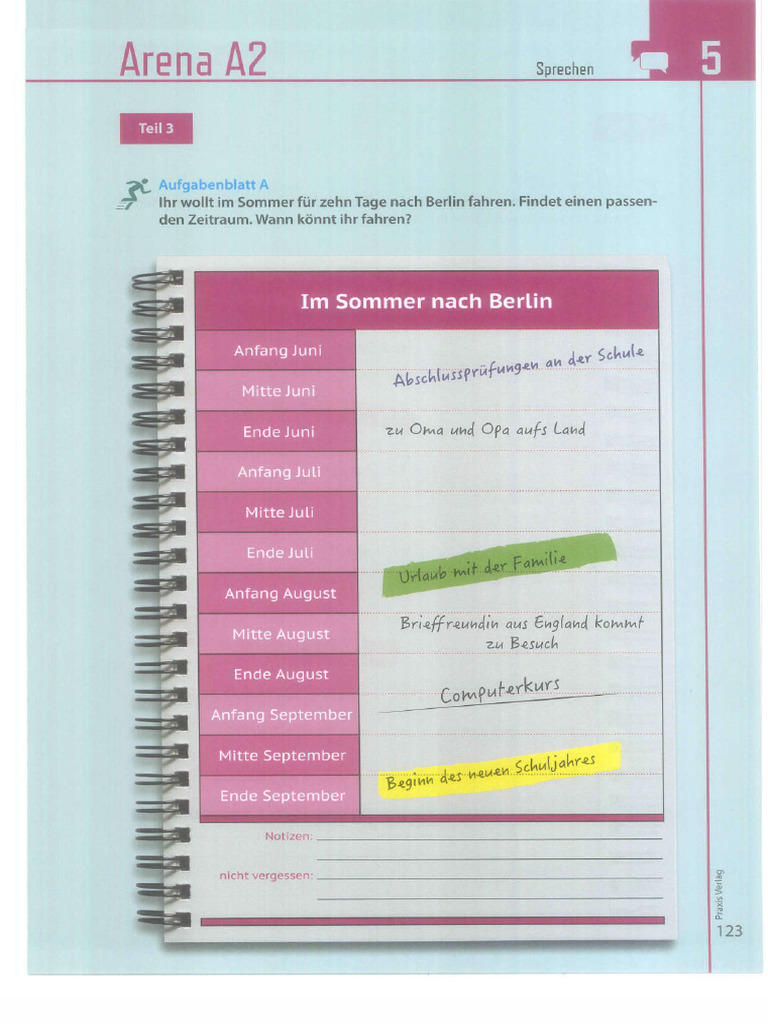 Arena A2
Sprechen
5
Teil 3
Aufgabenblatt A
Ihr wollt im Sommer für zehn Tage nach Berlin fahren. Findet einen passen-
den Zeitraum. Wann könnt ihr fahren?
Im Sommer nach Berlin
Anfang Juni
Abschlussprüfungen an der Schule
Mitte Juni
Ende Juni
zu Oma und Opa aufs Land
Anfang Juli
Mitte Juli
Ende Juli
Urlaub mit der Familie
Anfang August
Mitte August
Brieffreundin aus England kommt
zu Besuch
Ende August
Computerkurs
Anfang September
Mitte September
Beginn des neuen Schuljahres
Ende September
Notizen:
nicht vergessen:
Praxis Verlag
123